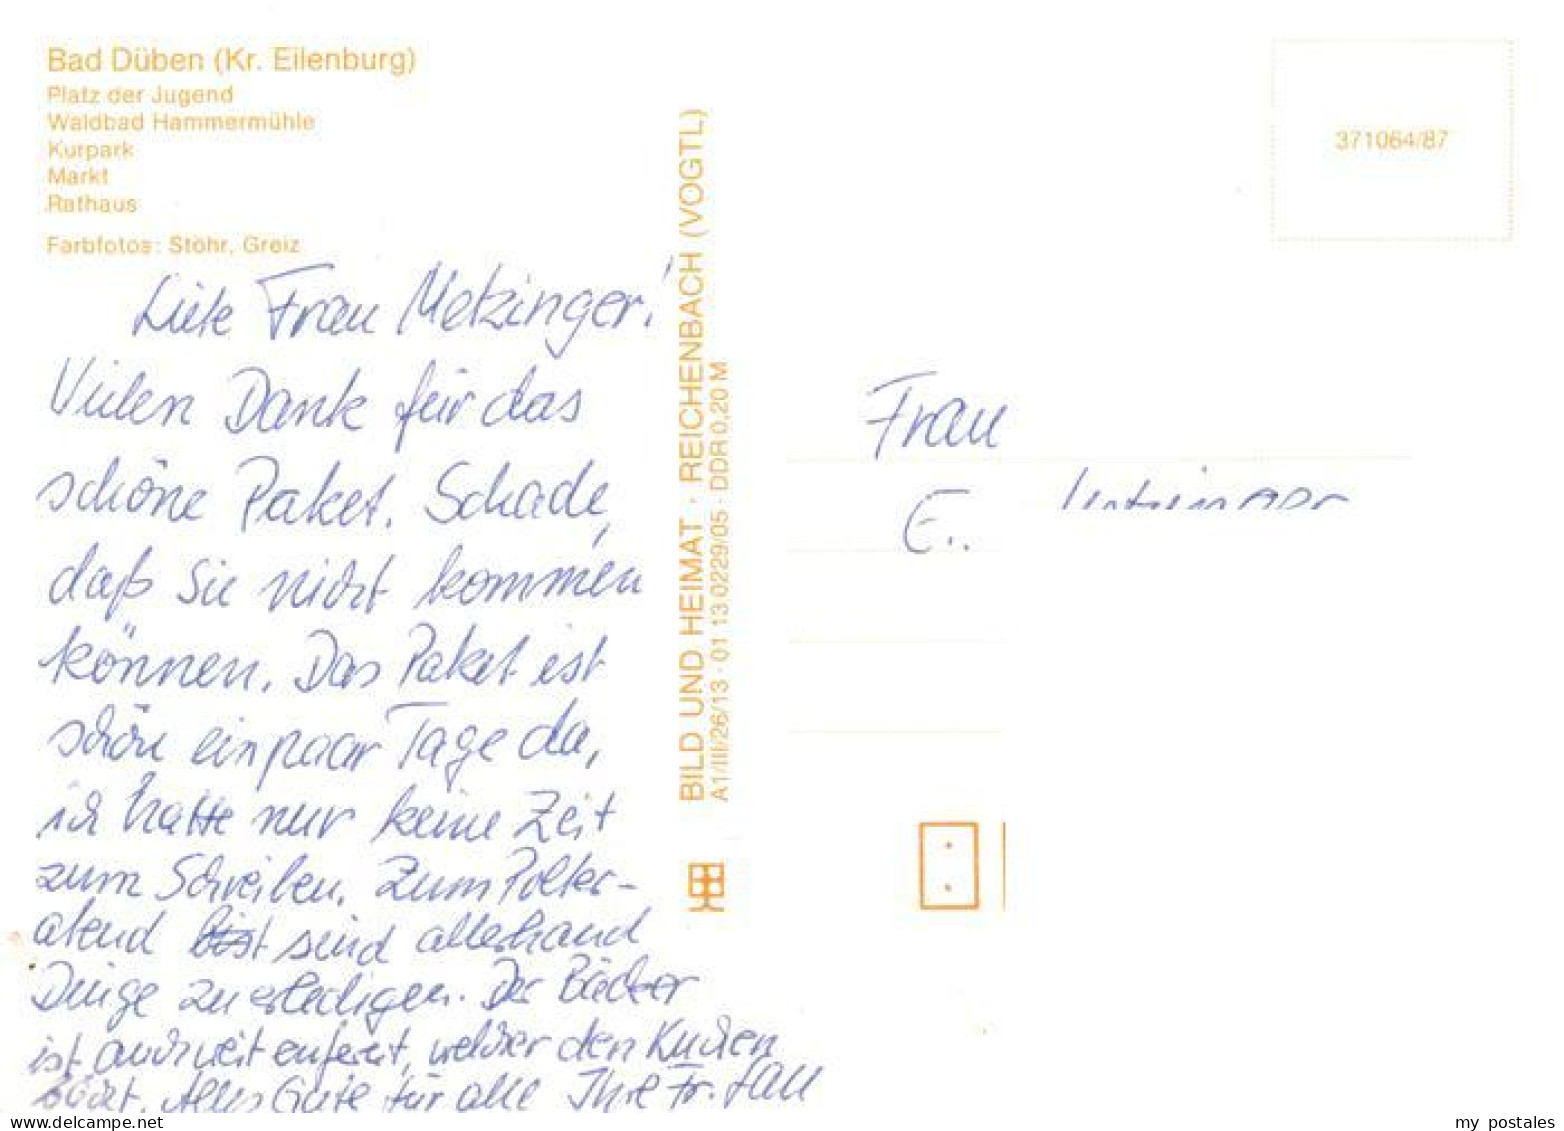 Bad Düben (Kr. Eilenburg)
Platz der Jugend
Waldbad Hammermühle
Kurpark
Markt
Rathaus
Farbfotos: Stöhr, Greiz
Liebe Frau Metzinger!
Vielen Dank für das
schöne Paket. Schade,
daß Sie nicht kommen
können. Das Paket ist
schon ein paar Tage da,
ich hatte nur keine Zeit
zum Schreiben. Zum Polter-
abend ist sind allerhand
Dinge zu erledigen. Der Bäcker
ist auch weit entfernt, welcher den Kuchen
bäckt. Alles Gute für alle Ihre Fr.
BILD UND HEIMAT · REICHENBACH (VOGTL)
A1/III/26/13 · 01 13 0229/05 · DDR 0,20 M
371064/87
Frau
E..
www.delcampe.net
my_postales